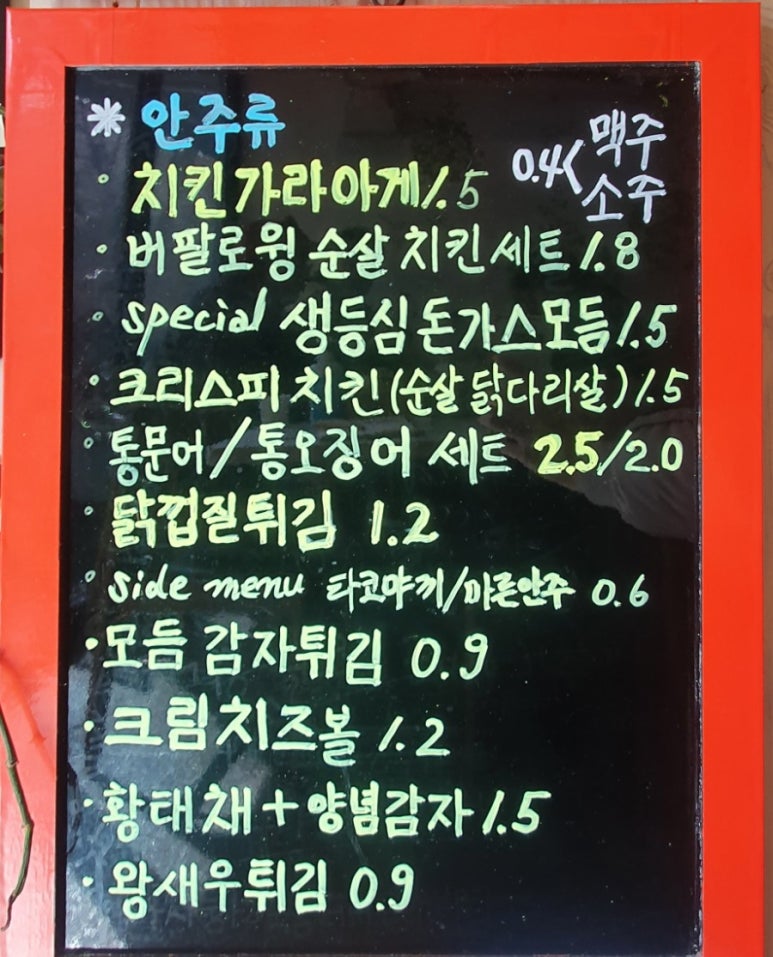 * 안주류
0.4< 맥주
소주
· 치킨가라아게 1.5
· 버팔로윙 순살 치킨 세트 1.8
· special 생등심 돈가스모듬 1.5
· 크리스피 치킨 (순살 닭다리살) 1.5
· 통문어/통오징어 세트 2.5/2.0
· 닭껍질튀김 1.2
· side menu 타코야끼/마른안주 0.6
· 모듬 감자튀김 0.9
· 크림치즈볼 1.2
· 황태채+양념감자 1.5
· 왕새우튀김 0.9